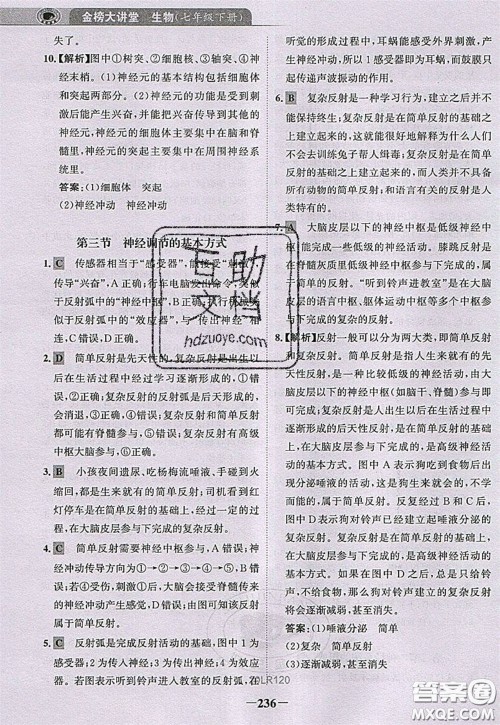 金榜大讲堂 生物(七年级下册)
失了。
10.【解析】图中①树突、②细胞核、③轴突、④神
经末梢。(1)神经元的基本结构包括细胞体
和突起两部分。(2)神经元的功能是受到刺
激后能产生兴奋，并能把兴奋传导到其他的
神经元，神经元的细胞体主要集中在脑和脊
髓里。神经元的突起主要集中在周围神经系
统里。
答案：(1)细胞体 突起
(2)神经冲动 神经冲动
第三节 神经调节的基本方式
1. C 传感器相当于“感受器”，能接受
传导“兴奋”，A正确；行车电脑发出命令，类
似于反射弧中的“神经中枢”，B正确；
类似于反射弧中的“效应器”，与“传出神经”相
连，C错误；D正确。
2. D 简单反射是先天性的，复杂反射是出生以
后在生活过程中经过学习逐渐形成的，①错
误，②正确；复杂反射是后天形成的，会
会消退，③正确；复杂反射需大脑参与，
简单反射有脊髓参与，④错误；⑤复杂反射有
大脑皮层参与，正确。
3. B 小孩夜间遗尿、吃杨梅流唾液、手碰到火
缩回，都是生来就有的简单反射；司机看到红
灯停车是在简单反射的基础上，经过一定的过
程，在大脑皮层参与下完成的复杂反射。
4. C 简单反射需要神经中枢参与，A错误；神
经冲动传导方向为①②③④⑤，B错误；结
构若④受伤，刺激①后，大脑会接受神经传
来的冲动产生感觉，D错误；由图可知该反射
有简单反射，也有复杂反射，C正确。
5. C 反射弧是完成反射活动的基础，图中1为
感受器，2为传入神经，3为神经中枢，4为传
出神经，5为效应器。
若图表示听到铃声进入教室的反射弧，在
听觉的形成过程中，耳蜗能感受外界刺激并产
生兴奋，所以1感受器即为耳蜗，而鼓膜只能
起传递声波振动的作用。
6. B 复杂反射是一种学习行为，建立后并不
能保持终生；复杂反射是在简单反射的基础之
上建立起来的，就能很好地解释为什么人们
不会去训练兔子帮人缉毒；复杂反射是在简单
反射的基础之上建立起来的，与语言有关的复
杂反射是人类所特有的。
7. A 大脑皮层以下的神经中枢是低级神经中
枢，能完成一些低级的神经活动。膝跳反射是
在脊髓灰质里低级神经中枢参与下完成的，属
于简单反射。“听到铃声进教室”，是在大脑皮
层的语言中枢、躯体运动中枢等多个中枢参与
下共同完成的，属于复杂反射。
8.【解析】反射一般可以分为两大类，即简单反射
和复杂反射。简单反射是指人生来就有的先
天性反射，是一种比较低级的神经活动，由大
脑皮层以下的神经中枢(如脑干、脊髓)参与即
可完成。复杂反射是人出生以后在生活过程
中逐渐形成的后天性反射，是在简单反射的基
础上，在大脑皮层参与下完成的，是高级神经
活动的基本方式。如图中A表示狗吃到食物后
出现分泌唾液的现象，这是狗生来就会的，属
于简单反射。反复经过B和C后，出现了图中
D的现象，即狗对铃声已经建立起唾液分泌的
反射，属于复杂反射，是在大脑皮层参与下完
成的高级神经活动的基本方式，是在简单反射
的基础上形成的。如果在图中D之后，总是只
给铃声，不喂食物，一段时间后，狗对铃声的反
射会逐渐减弱，甚至消失。
答案：(1)唾液分泌 简单
(2)复杂 简单
(3)反射会逐渐减弱，甚至消失
DLR120
236
互助
文档
hdzuoye.com
答案圈
MXQE.COM